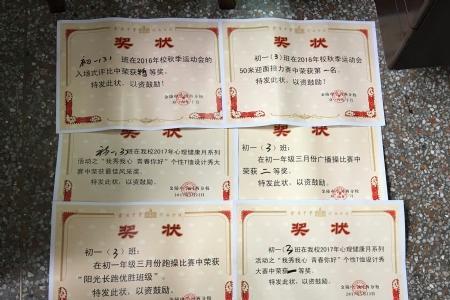 奖状
初一(3)班在2016年校秋季运动会的
入场式评比中荣获特等奖。
特发此状，以资鼓励！
奖状
初一(3)班在2016年校秋季运动会
50米迎面接力赛中荣获第一名。
特发此状，以资鼓励！
奖状
初一(3)班在我校2017年心理健康月系列
活动之“我秀我心 青春你好”个性T恤设计秀
大赛中荣获最佳风采奖。
特发此状，以资鼓励。
奖状
初一(3)班：
在初一年级三月份广播操比赛中
荣获二等奖。
特发此状，以资鼓励。
奖状
初一(3)班：
在初一年级三月份跑操比赛中荣获
“阳光长跑优胜班级”
特发此状，以资鼓励。
奖状
初一(3)班在我校2017年心理健康月系列
活动之“我秀我心 青春你好”个性T恤设计秀
大赛中荣获一等奖。
特发此状，以资鼓励。